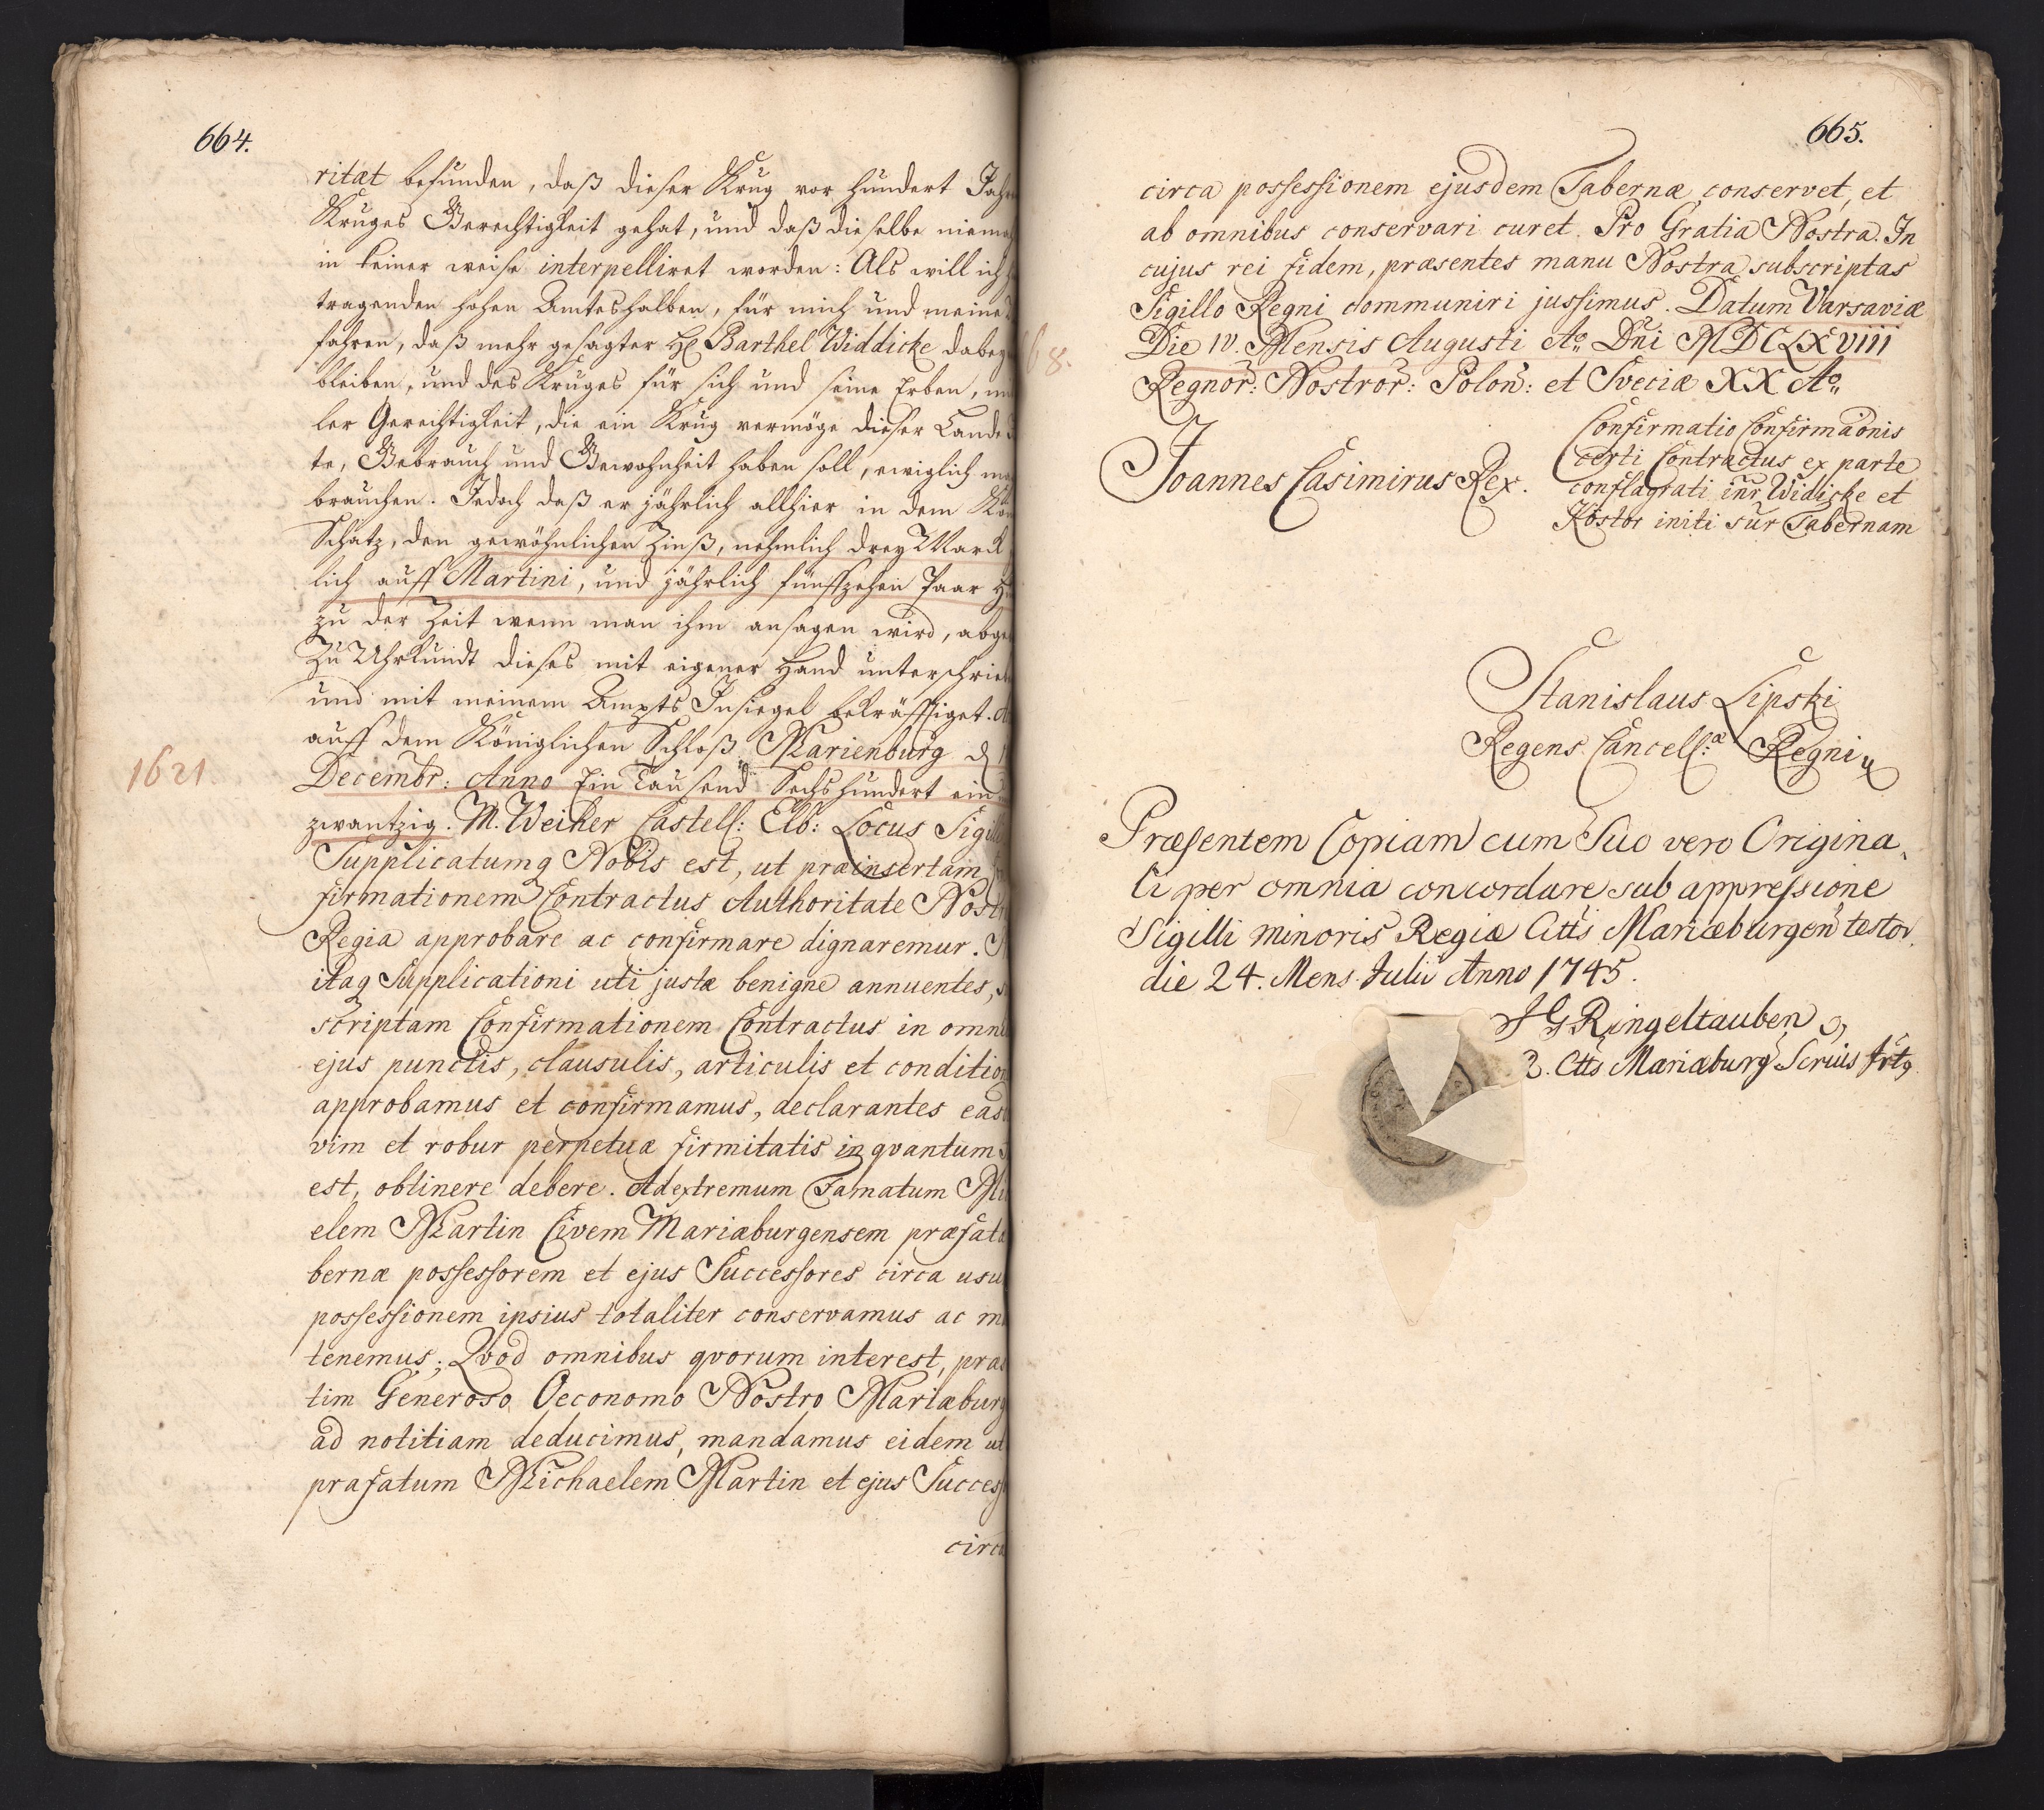 664.
ritæt befunden, daß dieser Krug vor hundert Jah
Kruges Gerechtigkeit gehat, und daß dieselbe niema
in keiner weise interpelliret worden: Als will ich
tragenden hohen Amteshalben, für mich und meine
fahren, daß mehr gesagter H Barthel Widdicke dabey
bleiben, und des Kruges für sich und seine Erben, m
ler Gerechtigkeit, die ein Krug vermöge dieser Lande
te, Gebrauch und Gewohnheit haben soll, ewiglich
brauchen. Jedoch daß er jährlich allhier in dem Kön
Schatz, den gewöhnlichen Zinß, nehmlich drey Marck
lich auff Martini, und jährlich fünffzehen Paar H
zu der Zeit wenn man ihm ansagen wird, abge
Zu Uhrkundt dieses mit eigener Hand unterschrieb
und mit meinem Ampts Insiegel bekräfftiget.
auff dem Königlichen Schloß Marienburg d
1621
Decembr: Anno Ein Tausend Sechs hundert ein
zwantzig. M. Weiher Castell: Elb: Locus Sigil
Supplicatumq Nobis est, ut præinsertam
firmationem Contractus Authoritate Nostr
Regia approbare ac confirmare dignaremur.
itaq Supplicationi uti justæ benigne annuentes,
scriptam Confirmationem Contractus in omni
ejus punctis, clausulis, articulis et condition
approbamus et confirmamus, declarantes eas
vim et robur perpetuæ firmitatis in qvantum
est, obtinere debere. Ad extremum Famatum Mi
elem Martin Civem Mariæburgensem præfat
bernæ possessorem et ejus Successores circa usu
possessionem ipsius totaliter conservamus ac m
tenemus; Qvod omnibus qvorum interest, præ
tim Generoso Oeconomo Nostro Mariæburg
ad notitiam deducimus, mandamus eidem ut
præfatum Michaelem Martin et ejus Success
circa
665.
circa possessionem ejusdem Tabernæ conservet, et
ab omnibus conservari curet. Pro Gratia Nostra. In
cujus rei fidem, præsentes manu Nostra subscriptas
Sigillo Regni communiri jussimus. Datum Varsaviæ
68.
Die IV. Mensis Augusti Ao Dni MDCLXVIII
Regnor: Nostror: Polon: et Sveciæ XX Ao
Joannes Casimirus Rex.
Confirmatio Confirmaonis
certi Contractus ex parte
conflagrati inr Widicke et
Köstor initi sur Tabernam
Stanislaus Lipski
Regens Cancell:æ Regni
Præsentem Copiam cum Suo vero Origina,
li per omnia concordare sub appressione
Sigilli minoris Regiæ Citts Mariæburgen testor
die 24. Mens Julii Anno 1745.
J G Ringeltauben
R. Ctts Mariæburg Scrius